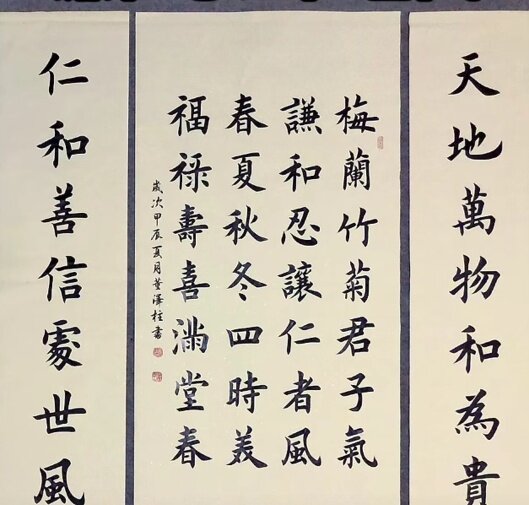 天地萬物和為貴
梅蘭竹菊君子氣
謙和忍讓仁者風
春夏秋冬四時美
福祿壽喜滿堂春
歲次甲辰夏月黃澤柱書
仁和善信處世風